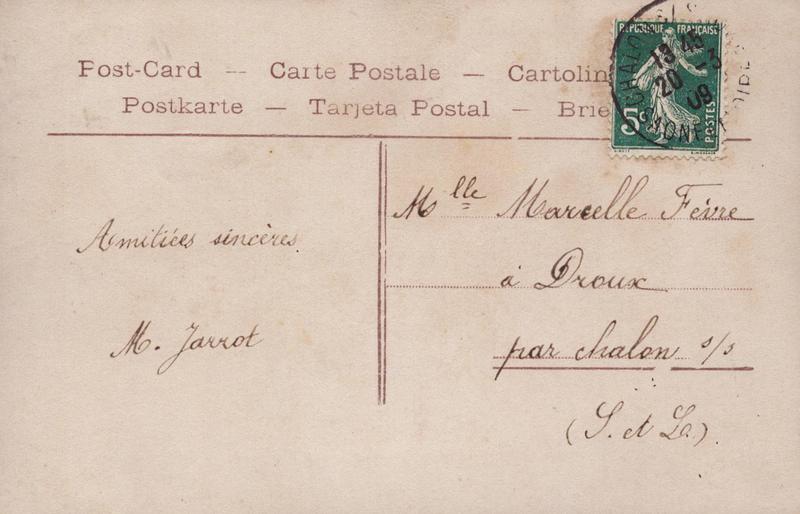 Post-Card — Carte Postale — Cartolin
Postkarte — Tarjeta Postal — Brie
RÉPUBLIQUE FRANÇAISE
5c
POSTES
13 45
20 -3
09
Amitiées sincères
M. Jarrot
Mlle Marcelle Fèvre
à Droux
par chalon s/s
(S. et L.).